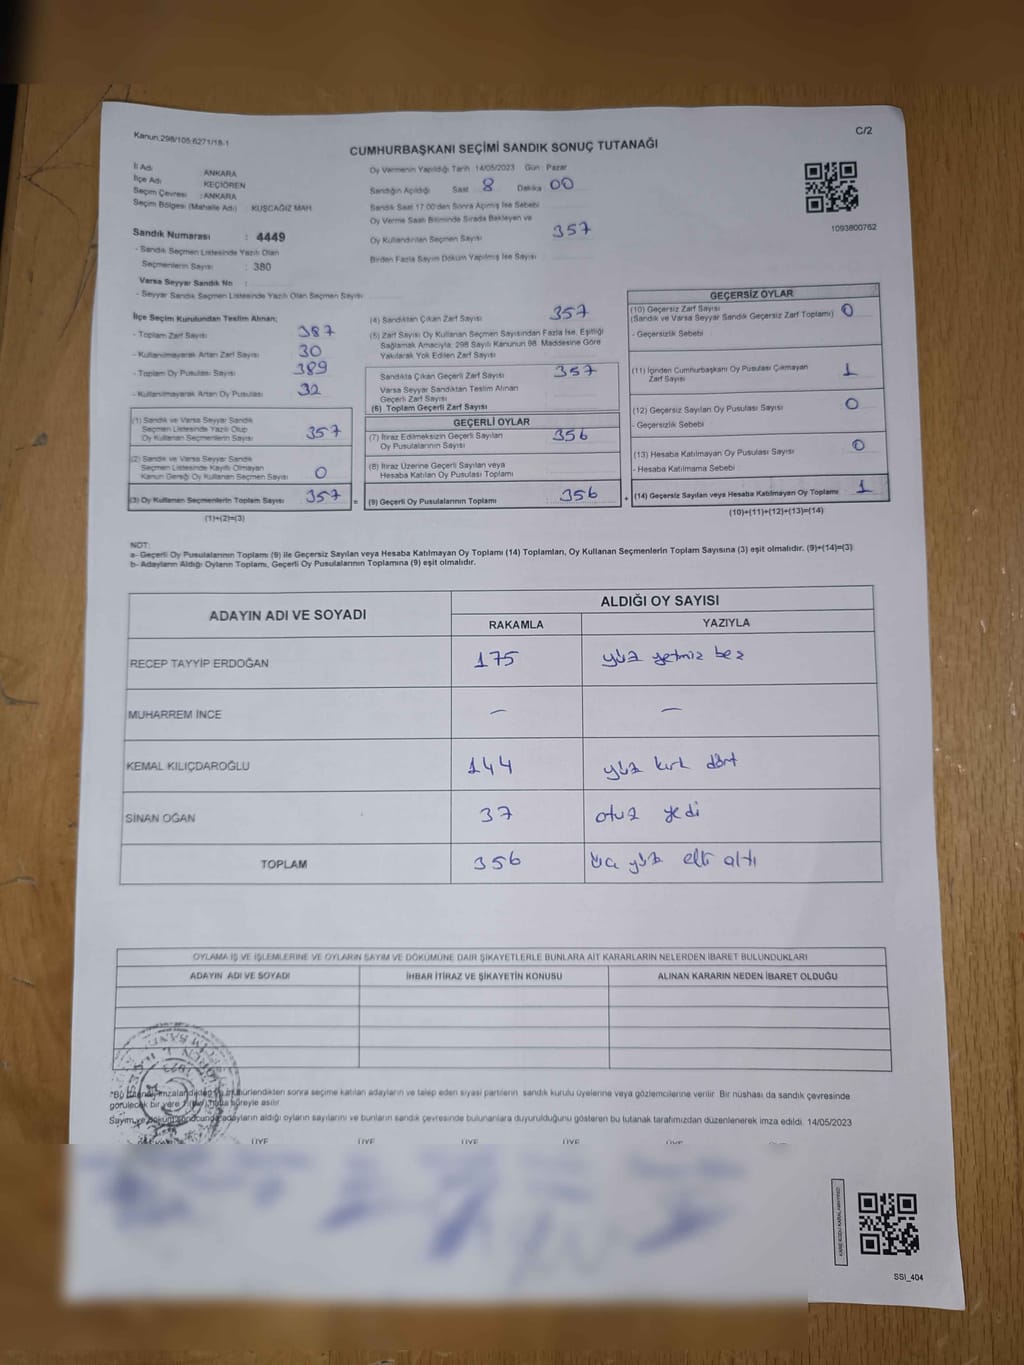 Kanun.298/105:6271/18-1
C/2
CUMHURBAŞKANI SEÇİMİ SANDIK SONUÇ TUTANAĞI
İl Adı : ANKARA
İlçe Adı : KEÇİÖREN
Seçim Çevresi : ANKARA
Seçim Bölgesi (Mahalle Adı) : KUŞCAĞIZ MAH.
Sandık Numarası : 4449
- Sandık Seçmen Listesinde Yazılı Olan
Seçmenlerin Sayısı : 380
Varsa Seyyar Sandık No :
- Seyyar Sandık Seçmen Listesinde Yazılı Olan Seçmen Sayısı
Oy Vermenin Yapıldığı Tarih 14/05/2023 Gün : Pazar
Sandığın Açıldığı Saat 8 Dakika 00
Sandık Saat 17.00'den Sonra Açılmış İse Sebebi
Oy Verme Saati Bitiminde Sırada Bekleyen ve
Oy Kullandırılan Seçmen Sayısı 357
Birden Fazla Sayım Döküm Yapılmış İse Sayısı
1093800762
İlçe Seçim Kurulundan Teslim Alınan;
- Toplam Zarf Sayısı 387
- Kullanılmayarak Artan Zarf Sayısı 30
- Toplam Oy Pusulası Sayısı 389
- Kullanılmayarak Artan Oy Pusulası 32
(1) Sandık ve Varsa Seyyar Sandık
Seçmen Listesinde Yazılı Olup
Oy Kullanan Seçmenlerin Sayısı 357
(2) Sandık ve Varsa Seyyar Sandık
Seçmen Listesinde Kayıtlı Olmayan
Kanun Gereği Oy Kullanan Seçmen Sayısı 0
(3) Oy Kullanan Seçmenlerin Toplam Sayısı 357
(1)+(2)=(3)
=
(4) Sandıktan Çıkan Zarf Sayısı 357
(5) Zarf Sayısı Oy Kullanan Seçmen Sayısından Fazla İse, Eşitliği
Sağlamak Amacıyla; 298 Sayılı Kanunun 98. Maddesine Göre
Yakılarak Yok Edilen Zarf Sayısı
Sandıkta Çıkan Geçerli Zarf Sayısı 357
Varsa Seyyar Sandıktan Teslim Alınan
Geçerli Zarf Sayısı
(6) Toplam Geçerli Zarf Sayısı
GEÇERLİ OYLAR
(7) İtiraz Edilmeksizin Geçerli Sayılan
Oy Pusulalarının Sayısı 356
(8) İtiraz Üzerine Geçerli Sayılan veya
Hesaba Katılan Oy Pusulası Toplamı
(9) Geçerli Oy Pusulalarının Toplamı 356
+
GEÇERSİZ OYLAR
(10) Geçersiz Zarf Sayısı
(Sandık ve Varsa Seyyar Sandık Geçersiz Zarf Toplamı) 0
- Geçersizlik Sebebi
(11) İçinden Cumhurbaşkanı Oy Pusulası Çıkmayan
Zarf Sayısı 1
(12) Geçersiz Sayılan Oy Pusulası Sayısı 0
- Geçersizlik Sebebi
(13) Hesaba Katılmayan Oy Pusulası Sayısı 0
- Hesaba Katılmama Sebebi
(14) Geçersiz Sayılan veya Hesaba Katılmayan Oy Toplamı 1
(10)+(11)+(12)+(13)=(14)
NOT:
a- Geçerli Oy Pusulalarının Toplamı (9) ile Geçersiz Sayılan veya Hesaba Katılmayan Oy Toplamı (14) Toplamları, Oy Kullanan Seçmenlerin Toplam Sayısına (3) eşit olmalıdır. (9)+(14)=(3)
b- Adayların Aldığı Oyların Toplamı, Geçerli Oy Pusulalarının Toplamına (9) eşit olmalıdır.
ADAYIN ADI VE SOYADI
ALDIĞI OY SAYISI
RAKAMLA YAZIYLA
RECEP TAYYİP ERDOĞAN 175 yüz yetmiz beş
MUHARREM İNCE – –
KEMAL KILIÇDAROĞLU 144 yüz kırk dört
SİNAN OĞAN 37 otuz yedi
TOPLAM 356 üç yüz elli altı
OYLAMA İŞ VE İŞLEMLERİNE VE OYLARIN SAYIM VE DÖKÜMÜNE DAİR ŞİKAYETLERLE BUNLARA AİT KARARLARIN NELERDEN İBARET BULUNDUKLARI
ADAYIN ADI VE SOYADI İHBAR İTİRAZ VE ŞİKAYETİN KONUSU ALINAN KARARIN NEDEN İBARET OLDUĞU
sonra seçime katılan adayların ve talep eden siyasi partilerin sandık kurulu üyelerine veya gözlemcilerine verilir. Bir nüshası da sandık çevresinde
görülecek bir yere süreyle asılır.
Sayım ve adayların aldığı oyların sayılarını ve bunların sandık çevresinde bulunanlara duyurulduğunu gösteren bu tutanak tarafımızdan düzenlenerek imza edildi. 14/05/2023
ÜYE ÜYE ÜYE ÜYE
SSI_404